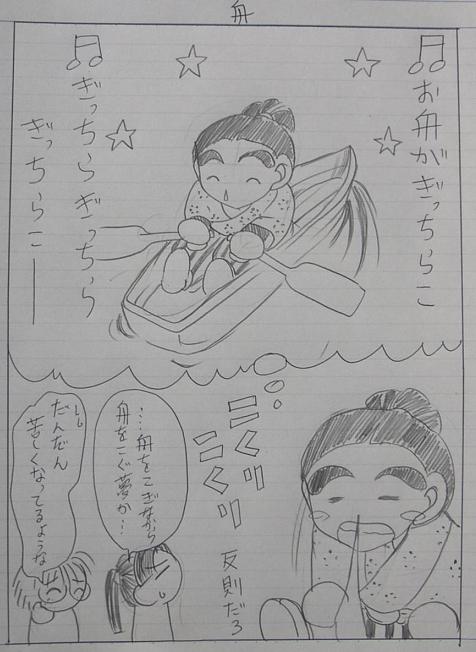 舟
♫お舟がぎっちらこ
♫ぎっちらぎっちら
ぎっちらこー
こくり
こくり
反則だろ
…舟をこぎながら
舟をこぐ夢か…
だんだん
苦しくなってるような